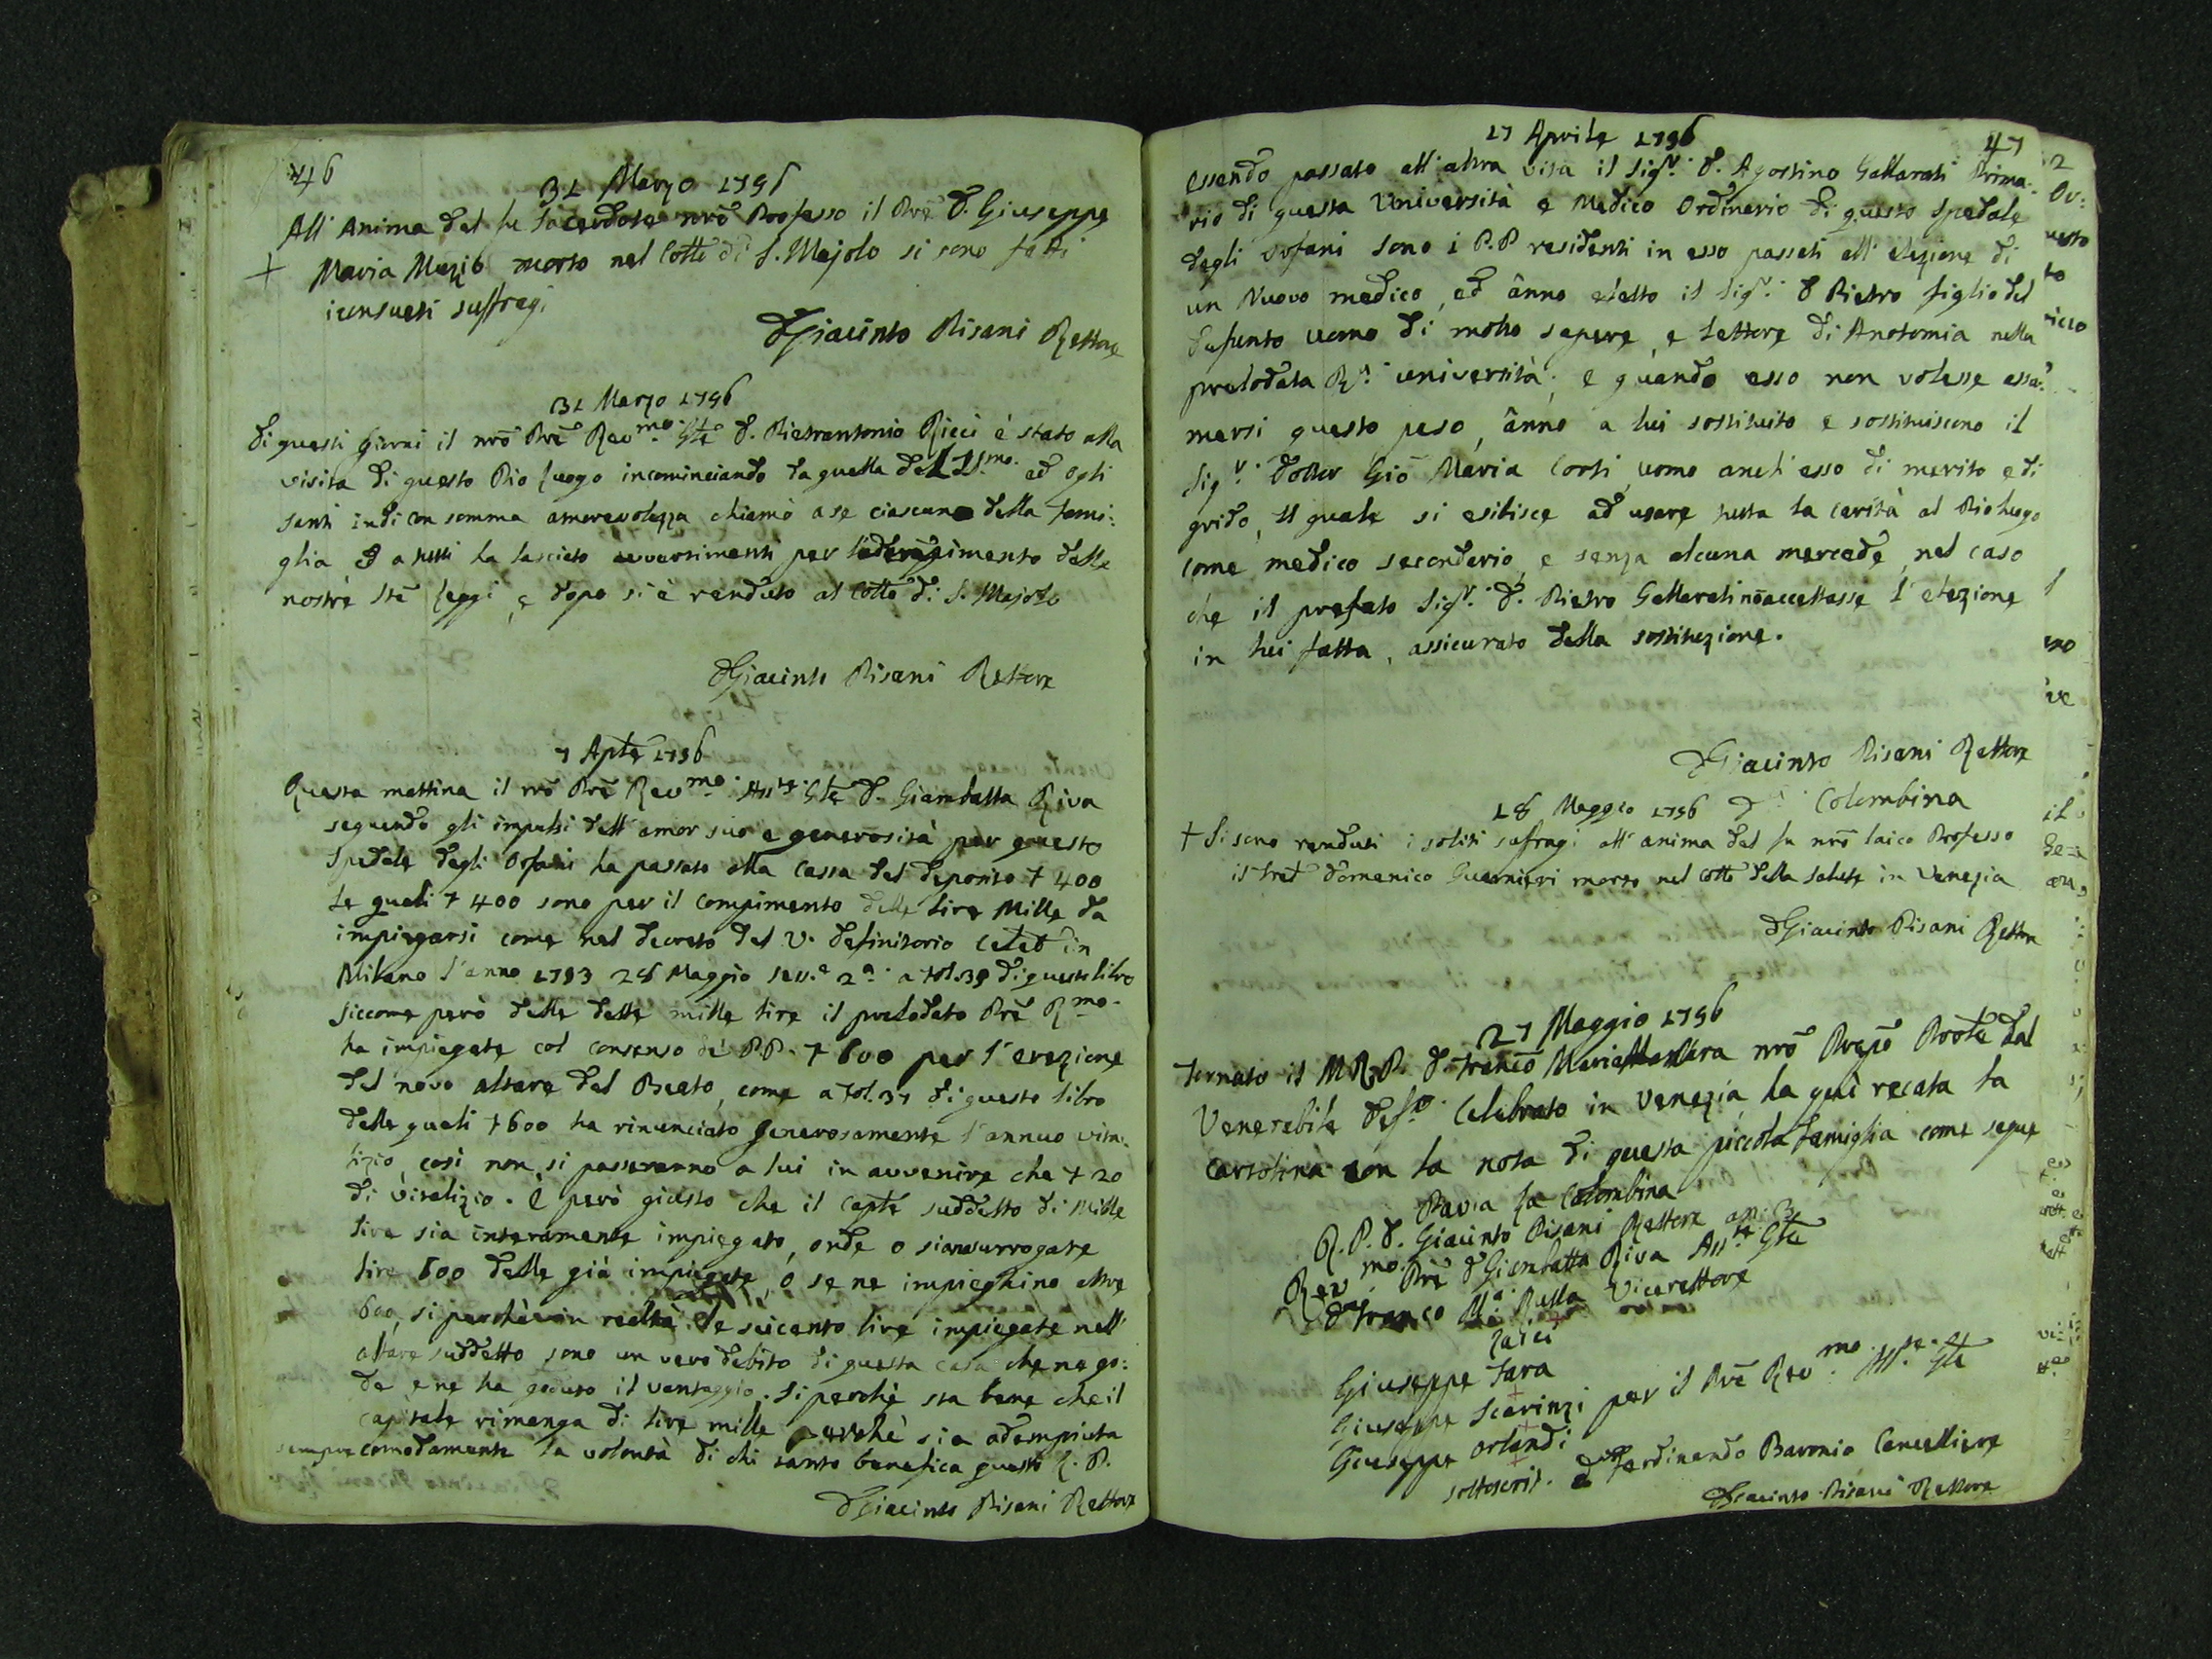 46
31 Marzo 1796
All'Anima del fu Sacerdote nrõ Professo il Prẽ D. Giuseppe
+ Maria Mazio morto nel Collõ di S. Majolo si sono fatti
i consueti suffragi
D Giacinto Pisani Rettore
31 Marzo 1796
Di questi Giorni il nrõ Prẽ Revmo. Glẽ D. Pietrantonio Ricci è stato alla
visita di questo Pio Luogo incominciando da quella del Smo. ed Ogli
santi indi con somma amorevolezza chiamò a se ciascuno della fami:
glia ed a tutti ha lasciato avvertimenti per l'adempimento delle
nostre Stẽ Leggi, e dopo si è renduto al Collõ di S. Majolo
D Giacinto Pisani Rettore
7 Aplẽ 1796
Questa mattina il nrõ Prẽ Revmo. Asste. Glẽ D. Giambatta Riva
seguendo gli impulsi dell'amor suo e generosità per questo
Spedale degli Orfani ha passato alla Cassa del deposito + 400
le quali + 400 sono per il compimento delle lire Mille da
impiegarsi come nel decreto del V. Definitorio Celeb in
Milano l'anno 1793 28 Maggio Sess.e 2a. a fol.39 di questo libro
Siccome però delle dette mille lire il prelodato Prẽ Rmo.
ha impiegate col consenso dè P.P. + 600 per l'erezione
del novo altare del Beato, come a fol. 37 di questo libro
delle quali + 600 ha rinunciato generosamente l'annuo vita:
lizio, così non si passeranno a lui in avvenire che + 20
di vitalizio. È però giusto che il Caplẽ suddetto di Mille
lire sia interamente impiegato, onde o siano surrogate
lire 600 delle già impiegate, ó se ne impieghino altre
600, si perchè in realtà le seicento lire impiegate nell'
altare suddetto sono un vero debito di questa casa che ne go:
de e ne ha goduto il vantaggio; si perchè sta bene che il
capitale rimanga di lire mille perchè sia adempiuta
sempre comodamente la volontà di chi tanto benefica questo L. P.
D Giacinto Pisani Rettore
47
17 Aprile 1796
Essendo passato all'altra vita il Sigr. D. Agostino Gallarati Prima:
rio di questa Università e Medico Ordinario di questo Spedale
degli Orfani sono i P.P residenti in esso passati all'elezione di
un Nuovo medico, ed ânno eletto il Sigr. D Pietro figlio del
defunto uomo di molto sapere, e Lettore di Anotomia nella
prelodata Ra. università; e quando esso non volesse assu:
mersi questo peso, ânno a lui sostituito e sostituiscono il
Sigr. Dottor Giõ Maria Corti, uomo anch'esso di merito e di
grido, il quale si esibisce ad usare tutta la carità al Pio luogo
come medico secondario, e senza alcuna mercede, nel caso
che il prefato Sigr. D. Pietro Gallarati nõ accettasse l'elezione
in lui fatta, assicurato della sostituzione.
D Giacinto Pisani Rettore
18 Maggio 1796 Colombina
+ Si sono renduti i soliti suffragi all'anima del fu nrõ laico Professo
il frat Domenico Guarnieri morto nel Collõ della Salute in Venezia
D Giacinto Pisani Rettore
27 Maggio 1796
Tornato il M.R.P. D. Francõ Maria nrõ Prepõ dal
Venerabile Defo. Celebrato in Venezia ha quì recata la
cartolina con la nota di questa piccola famiglia come segue
Pavia La Colombina
R. P. D. Giacinto Pisani Rettore an: 3
Revmo. Prẽ D Giambatta Riva Asste Glẽ
D Franco Ma. Rulla Vicerettore
Laici
Giuseppe Tara
Giuseppe Scarinzi per il Prẽ Revmo. Asste. Glẽ
Giuseppe Orlandi
sottoscrit. D Ferdinando Baronio Cancelliere
D Giacinto Pisani Rettore